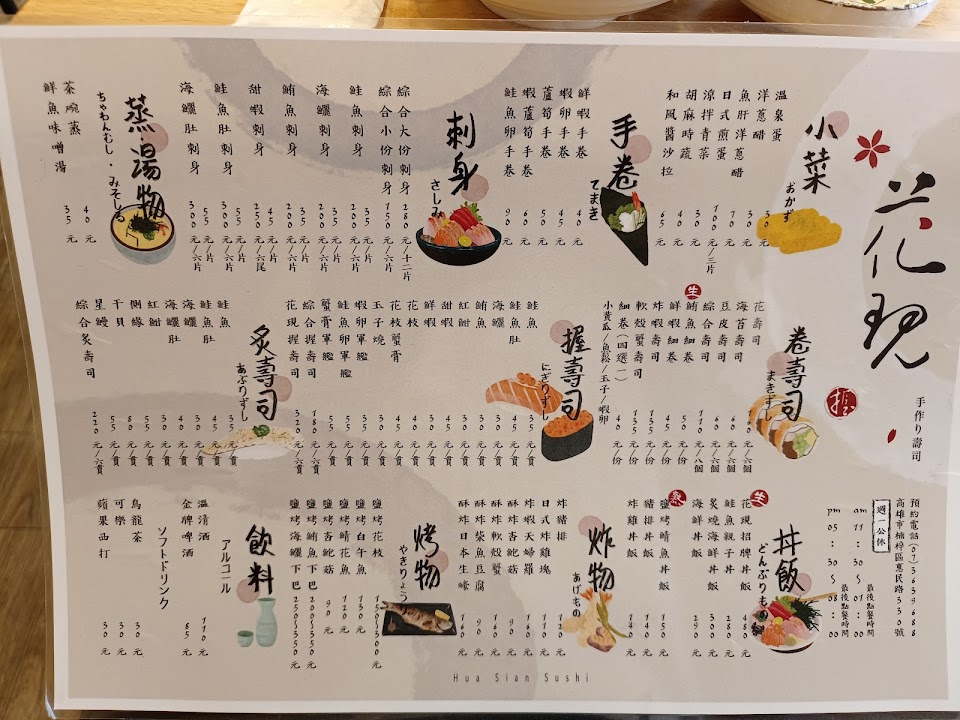 花現
手作り壽司
預約電話(07)3639688
高雄市楠梓區惠民路330號
週一公休
am 11:30~01:00 最後點餐時間
pm 05:30~08:00 最後點餐時間
小菜
おかず
溫泉蛋 30元
洋蔥醋 30元
魚肝洋蔥醋 70元
日式煎蛋 100元/三片
涼拌青菜 30元
胡麻時蔬 45元
和風醬沙拉 65元
手卷
てまき
鮮蝦手卷 40元
蝦卵手卷 45元
蘆筍手卷 50元
蝦蘆筍手卷 60元
鮭魚卵手卷 90元
刺身
さしみ
綜合大份刺身 280元/十二片
綜合小份刺身 150元/六片
鮭魚刺身 35元/片 200元/六片
海鱺刺身 35元/片 200元/六片
鮪魚刺身 35元/片 200元/六片
甜蝦刺身 45元/片 250元/六尾
鮭魚肚刺身 55元/片 300元/六片
海鱺肚刺身 55元/片 300元/六片
蒸湯物
ちゃわんむし・みそしる
茶碗蒸 40元
鮮魚味噌湯 35元
卷壽司
まきずし
花壽司 60元/六個
海苔壽司 60元/六個
豆皮壽司 60元/六個
綜合壽司 110元/八個
生
鮪魚細卷 50元/份
鮮蝦細卷 50元/份
炸蝦壽司 135元/份
軟殼蟹壽司 135元/份
細卷(四選一) 40元/份
小黃瓜/魚鬆/玉子/蝦卵
握壽司
にぎりずし
鮭魚
鮭魚肚
海鱺
鮪魚
紅魽
甜蝦
鮮蝦
花枝
花枝蟹膏
玉子燒
蝦卵軍艦
鮭魚卵軍艦
蟹膏軍艦
綜合握壽司 180元/六貫
花現握壽司 320元/六貫
炙壽司
あぶりずし
鮭魚
鮭魚肚
海鱺
海鱺肚
紅魽
側緣
干貝
星鰻
綜合炙壽司 220元/六貫
丼飯
どんぶりもの
生
花現招牌丼飯 480元
鮭魚親子丼 280元
炙燒海鮮丼飯 300元
海鮮丼飯 290元
熟
鹽烤鯖魚丼飯 150元
豬排丼飯 140元
炸雞丼飯 140元
炸物
あげもの
炸豬排 120元
日式炸雞塊 110元
炸蝦天婦羅 160元
炸杏鮑菇 90元
酥炸軟殼蟹
酥炸柴魚豆腐 90元
酥炸日本生蠔 160元
烤物
やきりょう
鹽烤花枝 150~300元
鹽烤白午魚
鹽烤鯖花魚 120元
鹽烤杏鮑菇 90元
鹽烤鮪魚下巴 200~350元
鹽烤海鱺下巴 250~350元
飲料
アルコール
溫清酒 110元
金牌啤酒 85元
ソフトドリンク
烏龍茶 30元
可樂 30元
蘋果西打 30元
Hua Sian Sushi